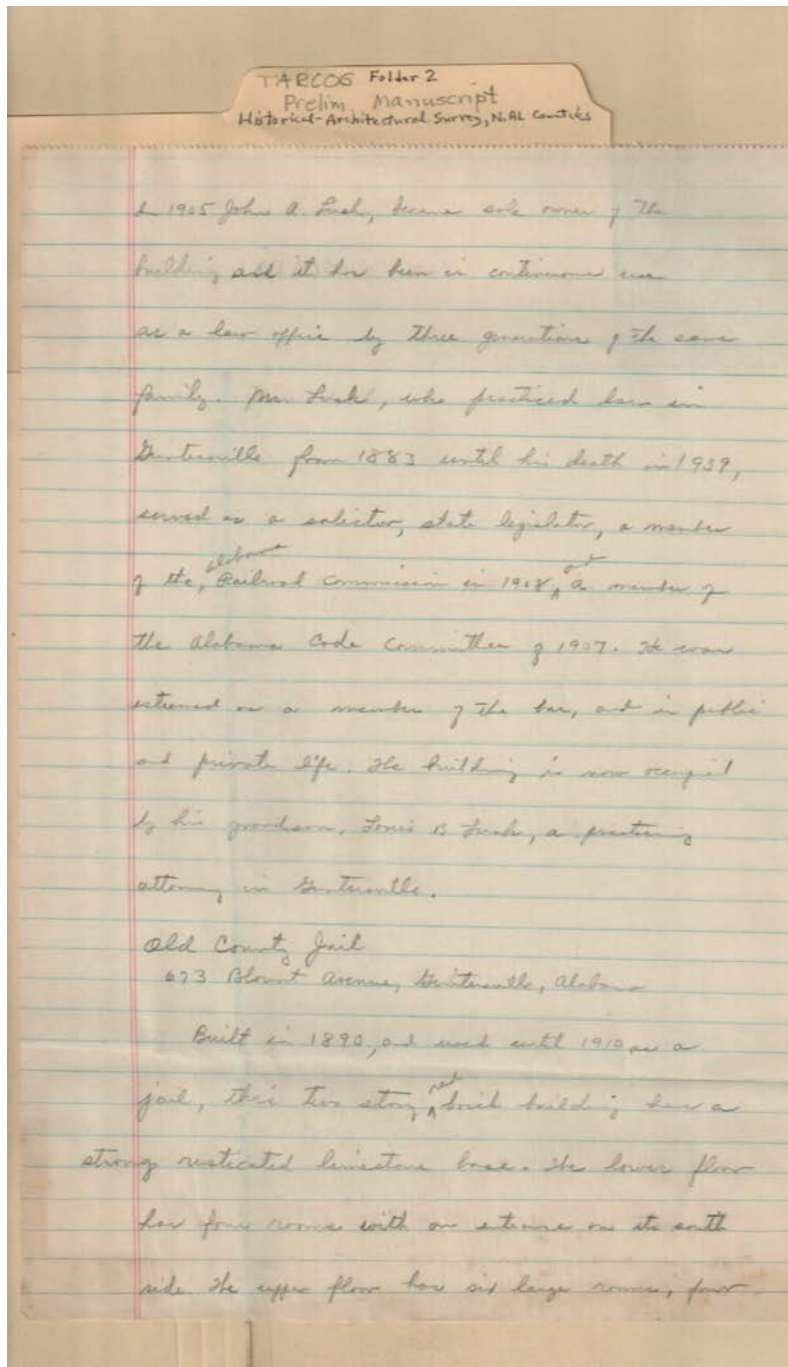 TARCOG Folder 2
Prelim. Manuscript
Historical-Architectural Survey, N. AL Counties
In 1905 John A. Lusk, became sole owner of the
building and it has been in continuous use
as a law office by three generations of the same
family. Mr. Lusk, who practiced law in
Guntersville from 1883 until his death in 1939,
served as a solicitor, state legislator, a member
of the, Alabama Railroad Commission in 1908, and a member of
the Alabama Code Committee of 1907. He was
esteemed as a member of the bar, and in public
and private life. The building is now occupied
by his grandson, Louis B Lusk, a practicing
attorney in Guntersville.
Old County Jail
673 Blount Avenue, Guntersville, Alabama
Built in 1890, and used until 1910 as a
jail, this two story red brick building has a
strong rusticated limestone base. The lower floor
has four rooms with an entrance on its south
side. The upper floor has six large rooms, four